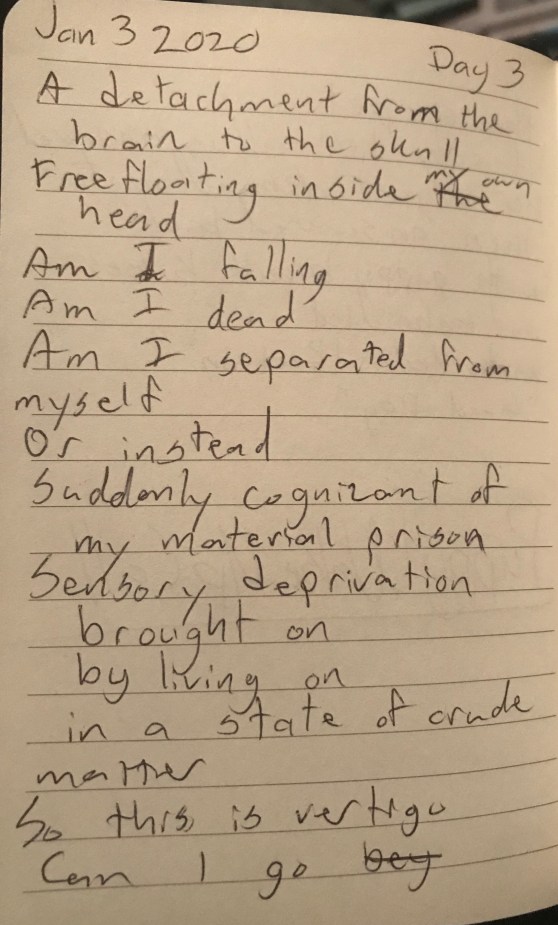 Jan 3 2020
Day 3
A detachment from the
brain to the skull
Free floating inside my own
the
head
Am I falling
Am I dead
Am I separated from
myself
Or instead
Suddenly cognizant of
my material prison
Sensory deprivation
brought on
by living on
in a state of crude
matter
So this is vertigo
Can I go bey